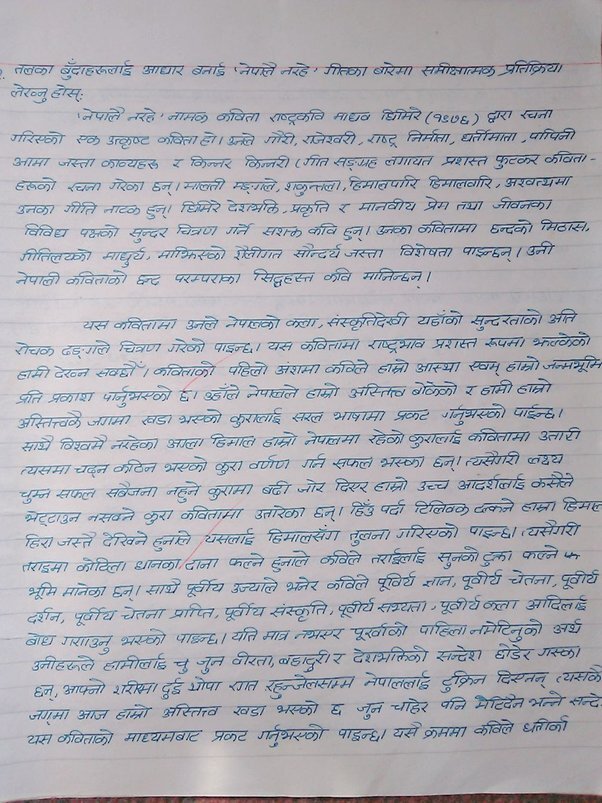 तलका बुँदाहरूलाई आधार बनाई 'नेपालै नरहे' गीतका बारेमा समीक्षात्मक प्रतिक्रिया
लेख्नुहोस्:
'नेपालै नरहे' नामक कविता राष्ट्रकवि माधव घिमिरे (१९७६) द्वारा रचना
गरिएको एक उत्कृष्ट कविता हो। उनले गौरी, राजेश्वरी, राष्ट्र निर्माता, धर्तीमाता, पापिनी
आमा जस्ता काव्यहरू र किन्नर किन्नरी (गीत सङ्ग्रह लगायत प्रशस्त फुटकर कविता-
हरूको रचना गरेका छन्। मालती मङ्गले, शकुन्तला, हिमालपारि हिमालवारि, अश्वत्थामा
उनका गीति नाटक हुन्। घिमिरे देशभक्ति, प्रकृति र मानवीय प्रेम तथा जीवनका
विविध पक्षको सुन्दर चित्रण गर्ने सशक्त कवि हुन्। उनका कवितामा छन्दको मिठास,
गीतिलयको माधुर्य, माझिएको शैलीगत सौन्दर्य जस्ता विशेषता पाइन्छन्। उनी
नेपाली कविताको छन्द परम्पराका सिद्धहस्त कवि मानिन्छन्।
यस कवितामा उनले नेपालको कला, संस्कृतिदेखी यहाँको सुन्दरताको अति
रोचक ढङ्गले चित्रण गरेको पाइन्छ। यस कवितामा राष्ट्रभाव प्रशस्त रूपमा झल्केको
हामी देख्न सक्छौँ। कविताको पहिलो अंशमा कविले हाम्रो आस्था एवम् हाम्रो जन्मभूमि
प्रति प्रकाश पार्नुभएको छ। उहाँले नेपालले हाम्रो अस्तित्व बोकेको र हामी हाम्रो
अस्तित्वकै जगमा खडा भएको कुरालाई सरल भाषामा प्रकट गर्नुभएको पाइन्छ।
साथै विश्वमै नरहेका अग्ला हिमाल हाम्रो नेपालमा रहेको कुरालाई कवितामा उतारी
त्यसमा चढ्न कठिन भएको कुरा वर्णण गर्न सफल भएका छन्। त्यसैगरी लक्ष्य
चुम्न सफल सबैजना नहुने कुरामा बढी जोर दिएर हाम्रो उच्च आदर्शलाई कसैले
भेट्टाउन नसक्ने कुरा कवितामा उतारेका छन्। हिउँ पर्दा टिलिक्क टल्कने हाम्रा हिमाल
हिरा जस्तै देखिने हुनाले यसलाई हिमालसँग तुलना गरिएको पाइन्छ। त्यसैगरी
तराइमा कोटिला धानका दाना फल्ने हुनाले कविले तराईलाई सुनको टुक्रा फल्ने
भूमि मानेका छन्। साथै पूर्वीय उज्यालो भनेर कविले पूर्वीय ज्ञान, पूर्वीय चेतना, पूर्वीय
दर्शन, पूर्वीय चेतना प्राप्ति, पूर्वीय संस्कृति, पूर्वीय सभ्यता, पूर्वीय कला आदिलाई
बोध गराउनु भएको पाइन्छ। यति मात्र नभएर पूर्खाको पाहिला नमेटिनुको अर्थ
उनीहरूले हामीलाई जुन वीरता, बहादुरी र देशभक्तिको सन्देश छोडेर गएका
छन्, आफ्नो शरीरमा दुई थोपा रगत रहुन्जेलसम्म नेपाललाई टुक्रिन दिएनन् त्यसकै
जगमा आज हाम्रो अस्तित्व खडा भएको छ जुन चाहेर पनि मेटिदैन भन्ने सन्दे
यस कविताको माध्यमबाट प्रकट गर्नुभएको पाइन्छ। यसै क्रममा कविले धर्तीको